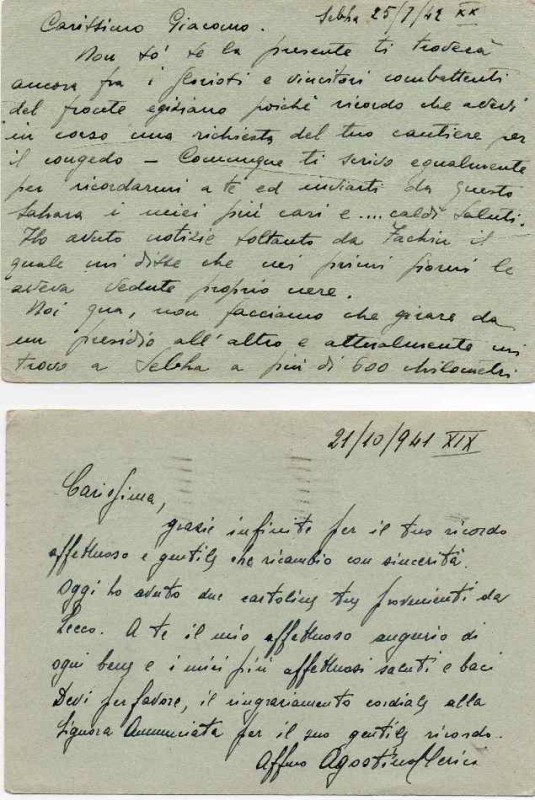 Sebha 25/7/42 XX
Carissimo Giacomo.
Non so' se la presente ti troverà
ancora fra i gloriosi e vincitori combattenti
del fronte egiziano poichè ricordo che avevi
in corso una richiesta del tuo cantiere per
il congedo - Comunque ti scrivo egualmente
per ricordarmi a te ed inviarti da questo
Sahara i miei più cari e .... caldi saluti.
Ho avuto notizie soltanto da Fachin il
quale mi disse che nei primi giorni le
aveva vedute proprio nere.
Noi qua, non facciamo che girare da
un presidio all'altro e attualmente mi
trovo a Sebha a più di 600 chilometri
21/10/941 XIX
Carissima,
grazie infinite per il tuo ricordo
affettuoso e gentile che ricambio con sincerità.
Oggi ho avuto due cartoline tue provenienti da
Lecco. A te il mio affettuoso augurio di
ogni bene e i miei più affettuosi saluti e baci
Devi per favore, il ringraziamento cordiale alla
Signora Annunciata per il suo gentile ricordo.
Affmo Agostino Clerici